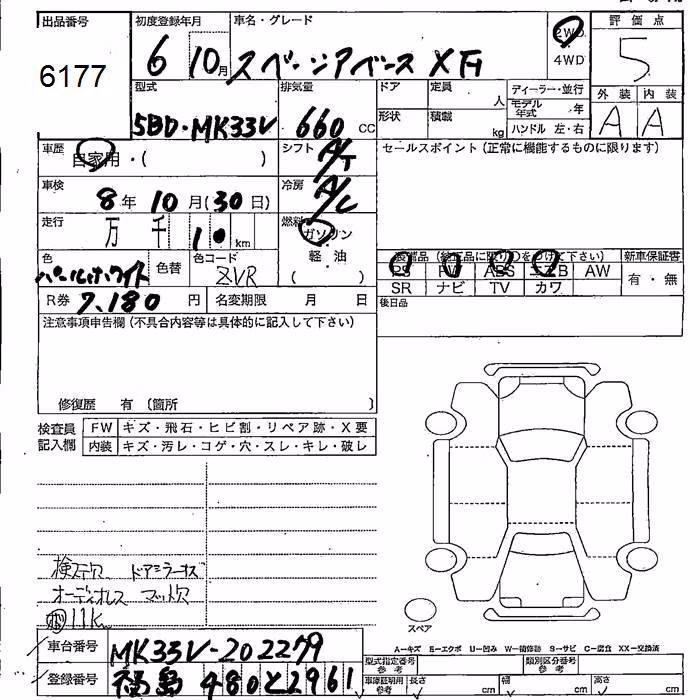 出品番号
6177
初度登録年月
6 10月
車名・グレード
スペーシアベース XF
2WD
4WD
評価点
5
外装 内装
A A
型式
5BD・MK33V
排気量
660 CC
ドア 定員 人
形状 積載 kg
ディーラー・並行
モデル年式 年
ハンドル 左・右
車歴
自家用・( )
シフト
A/T
セールスポイント(正常に機能するものに限ります)
車検
8年 10月(30日)
冷房
A/C
走行
万 千 10 km
燃料
ガソリン
軽油
( )
色
パールホワイト
色替
色コード
ZVR
PS PW ABS エアB AW
SR ナビ TV カワ
新車保証書
有・無
後日品
R券 7,180 円
名変期限 月 日
注意事項申告欄(不具合内容等は具体的に記入して下さい)
修復歴 有 〔箇所 〕
検査員記入欄
FW キズ・飛石・ヒビ割・リペア跡・X要
内装 キズ・汚レ・コゲ・穴・スレ・キレ・破レ
検ステ欠 ドアミラーキズ
オーディオレス マット欠
11K
スペア
A−キズ E−エクボ U−凹み W−補修跡 S−サビ C−腐食 XX−交換済
車台番号
MK33V-202279
登録番号
福島 480 と 2961
型式指定番号 参考
類別区分番号 参考
車庫証明用 参考
長さ cm 幅 cm 高さ cm